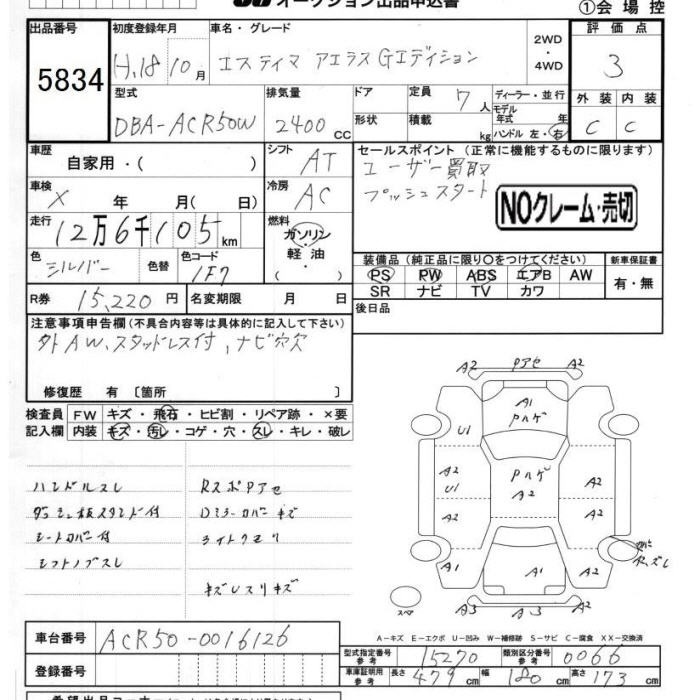 オークション出品申込書
①会場控
出品番号
5834
初度登録年月
H.18 10月
車名・グレード
エスティマ アエラス Gエディション
2WD
・
4WD
評価点
3
型式
DBA-ACR50W
排気量
2400 CC
ドア
形状
定員 7人
積載 kg
ディーラー・並行
モデル
年式 年
ハンドル 左・右
外装 内装
C C
車歴
自家用・( )
シフト
AT
セールスポイント (正常に機能するものに限ります)
ユーザー買取
プッシュスタート
NOクレーム・売切
車検
X 年 月( 日)
冷房
AC
走行
12万6千105km
燃料
ガソリン
・
軽油
( )
色
シルバー
色替
色コード
1F7
装備品(純正品に限り〇をつけてください)
PS PW ABS エアB AW
SR ナビ TV カワ
新車保証書
有・無
R券 15,220円
名変期限 月 日
後日品
注意事項申告欄(不具合内容等は具体的に記入して下さい)
外AW、スタッドレス付、ナビ穴欠
修復歴 有 〔箇所 〕
検査員 FW キズ・飛石・ヒビ割・リペア跡・×要
記入欄 内装 キズ・汚レ・コゲ・穴・スレ・キレ・破レ
ハンドルスレ
RスポPアセ
ダッシュ板スタンド付
Dミラーカバーキズ
シートカバー付
ライトクモリ
シフトノブスレ
キズレスリキズ
A2 Pアセ A2
A1
Pハゲ
U1
A2
U1
Pハゲ
A2
A2
A2
A2
A1 A1 A2
スペ
A3 A3 A2
A-キズ E-エクボ U-凹み W-補修跡 S-サビ C-腐食 XX-交換済
車台番号
ACR50-0016126
登録番号
型式指定番号
参考
15270
類別区分番号
参考
0066
車庫証明用
参考
長さ 479cm 幅 180cm 高さ 173cm